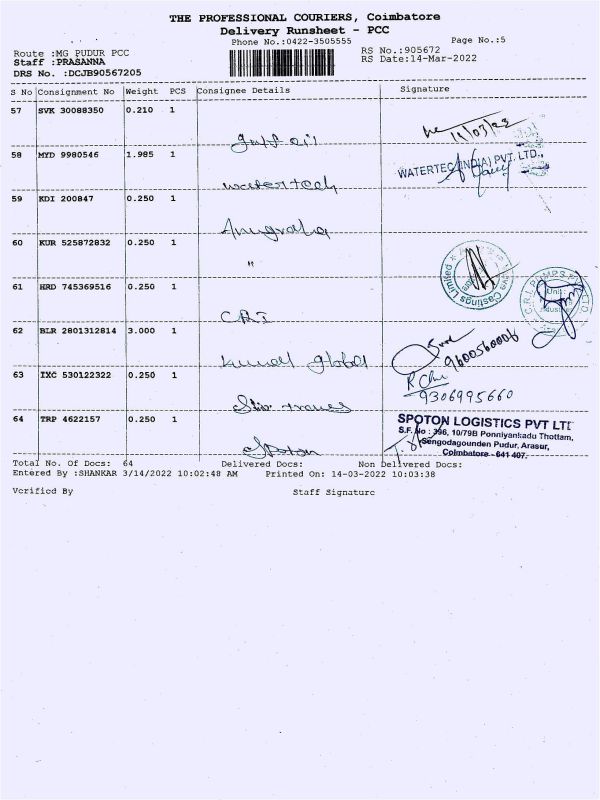 THE PROFESSIONAL COURIERS, Coimbatore
Delivery Runsheet - PCC
Phone No.:0422-3505555 Page No.:5
Route :MG PUDUR PCC RS No.:905672
Staff :PRASANNA RS Date:14-Mar-2022
DRS No. :DCJB90567205
S No Consignment No Weight PCS Consignee Details Signature
57 SVK 30088350 0.210 1
58 MYD 9980546 1.985 1
WATERTEC (INDIA) PVT. LTD.,
watertech
59 KDI 200847 0.250 1
Anugraha
60 KUR 525872832 0.250 1
"
61 HRD 745369516 0.250 1
C.R.I. PUMPS
CRI
62 BLR 2801312814 3.000 1
9600560006
Kumal global
63 IXC 530122322 0.250 1
9306995660
64 TRP 4622157 0.250 1
SPOTON LOGISTICS PVT LTD
S.F.No : 396, 10/79B Ponniyankadu Thottam,
Sengodagounden Pudur, Arasur,
Coimbatore - 641 407.
Spoton
Total No. Of Docs: 64 Delivered Docs: Non Delivered Docs:
Entered By :SHANKAR 3/14/2022 10:02:48 AM Printed On: 14-03-2022 10:03:38
Verified By Staff Signature